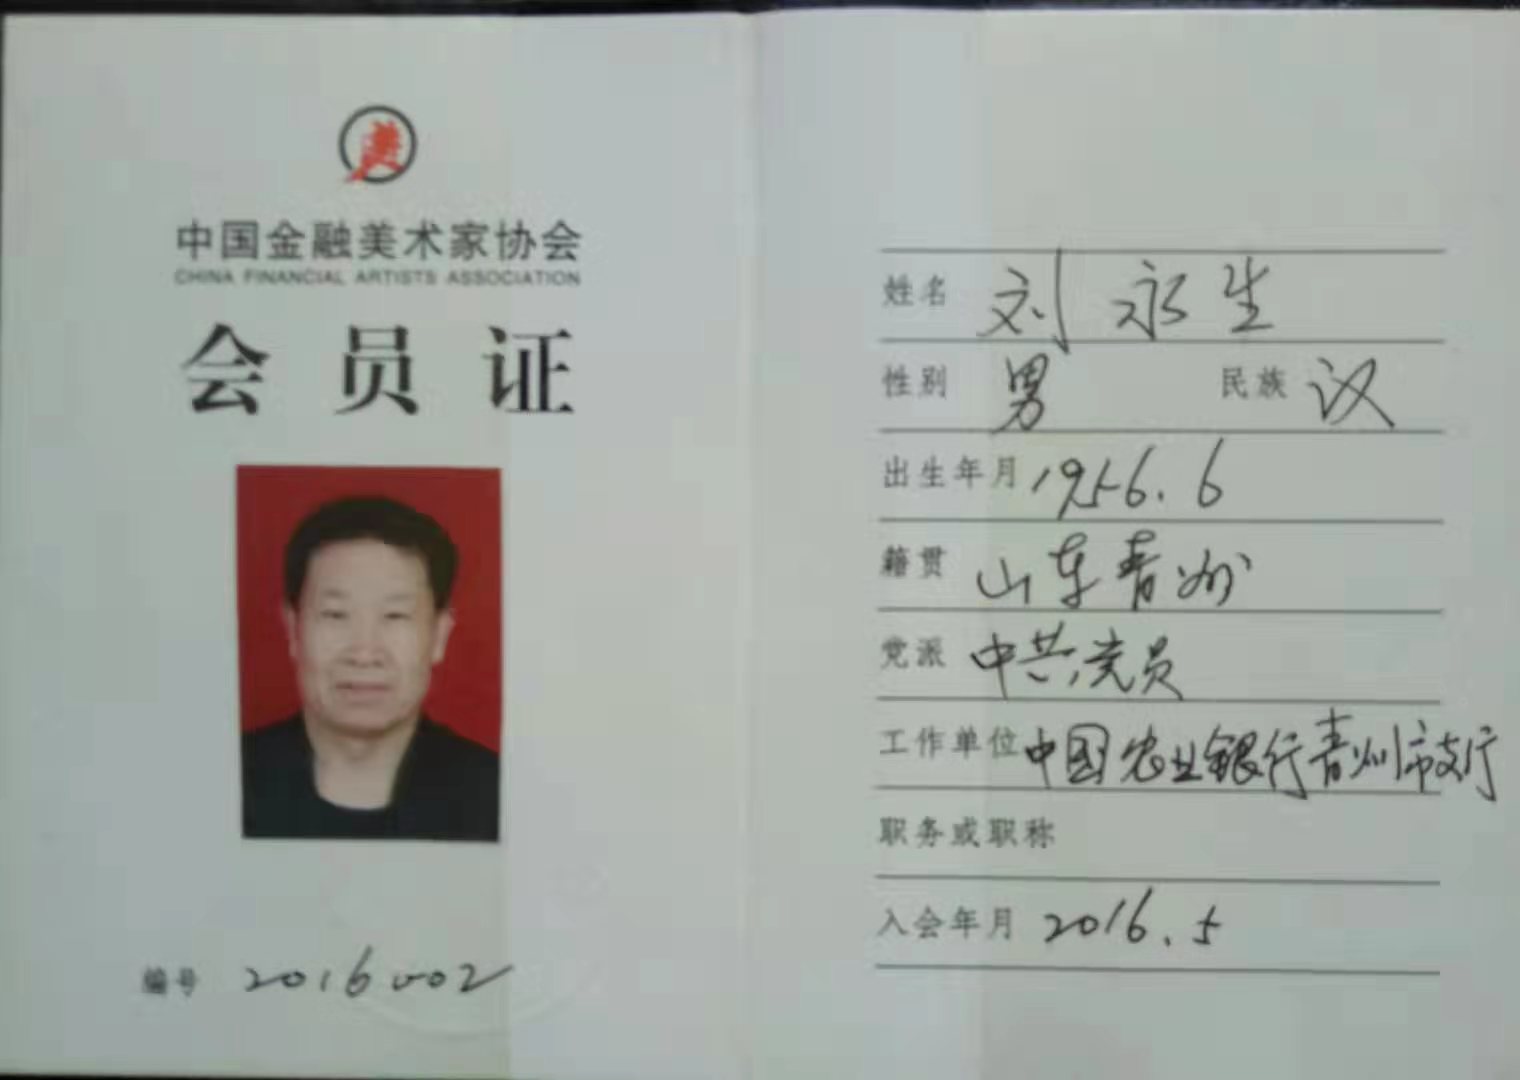 美
中国金融美术家协会
CHINA FINANCIAL ARTISTS ASSOCIATION
会员证
编号 2016002
姓名 刘永生
性别 男 民族 汉
出生年月 1956.6
籍贯 山东青州
党派 中共党员
工作单位 中国农业银行青州市支行
职务或职称
入会年月 2016.5